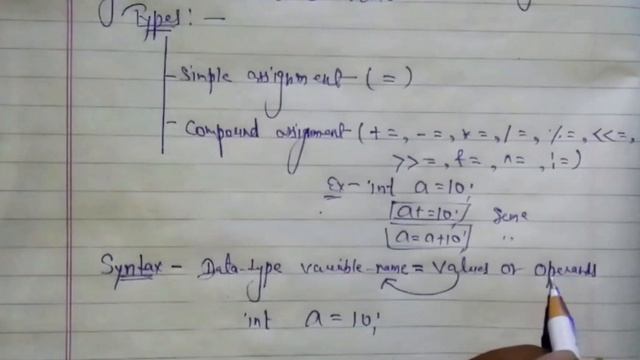 Types: —
Simple assignment - ( = )
Compound assignment ( + = , - = , * = , / = , % = , << = ,
>> = , & = , ^ = , ! = )
Ex - int a = 10;
a+=10; Same
a = a+10; ,,
Syntax - Data-type variable-name = values or operands
int a = 10;